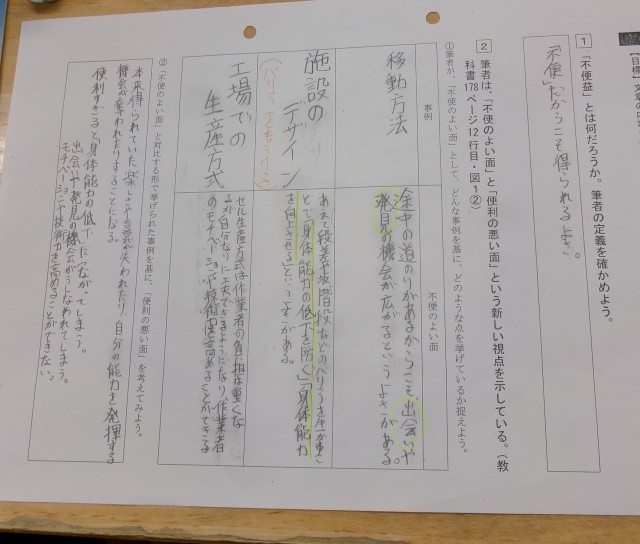 【目標】
1 「不便益」とは何だろうか。筆者の定義を確かめよう。
「不便」だからこそ得られるよさ。
2 筆者は、「不便のよい面」と「便利の悪い面」という新しい視点を示している。（教
科書178ページ12行目・図1②）
①筆者が、「不便のよい面」として、どんな事例を基に、どのような点を挙げているか捉えよう。
事例
不便のよい面
移動方法
途中の道のりがあるからこそ出会いや
発見の機会が広がるというよさがある。
施設の
デザイン
(バリアをもうける)
あえて段差や坂、階段などのバリアを生かすこ
とで「身体能力の低下を防ぐ」「身体能力
を向上させる」というよさがある。
工場での
生産方式
セル生産方式は作業者の負担は重くな
るが自分なりに工夫できるようになり、作業者
のモチベーションや技術力を高めることができる
②「不便のよい面」と対比する形で挙げられた事例を基に、「便利の悪い面」を考えてみよう。
本来得られていた楽しさや喜びが失われたり、自分の能力を発揮する
機会が奪われたりすることになる。
便利すぎると「身体能力の低下」につながってしまう。
出会いや発見の機会がうしなわれてしまう。
モチベーションや技術力を高めることができない。